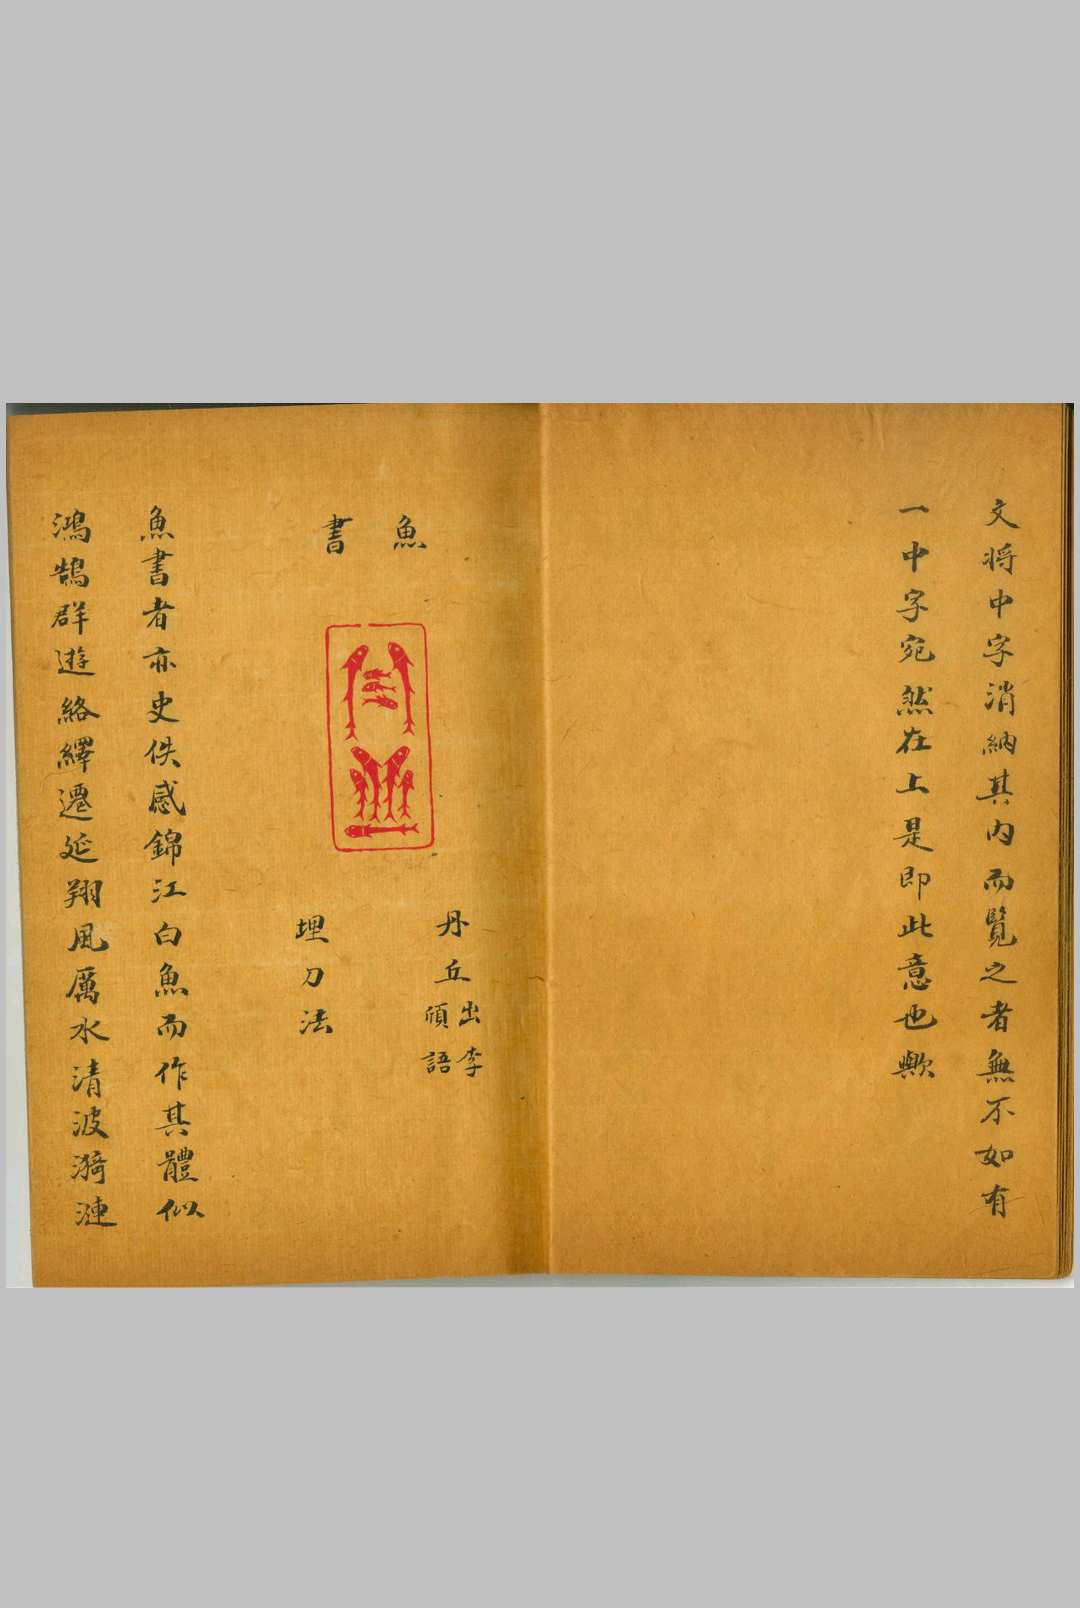 文将中字消納其内而覽之者無不如有
一中字宛然在上是即此意也歟
魚書
丹丘
出李
頎語
埋刀法
魚書者亦史佚感錦江白魚而作其體似
鴻鵠群遊絡繹遷延翔風厲水清波漪漣